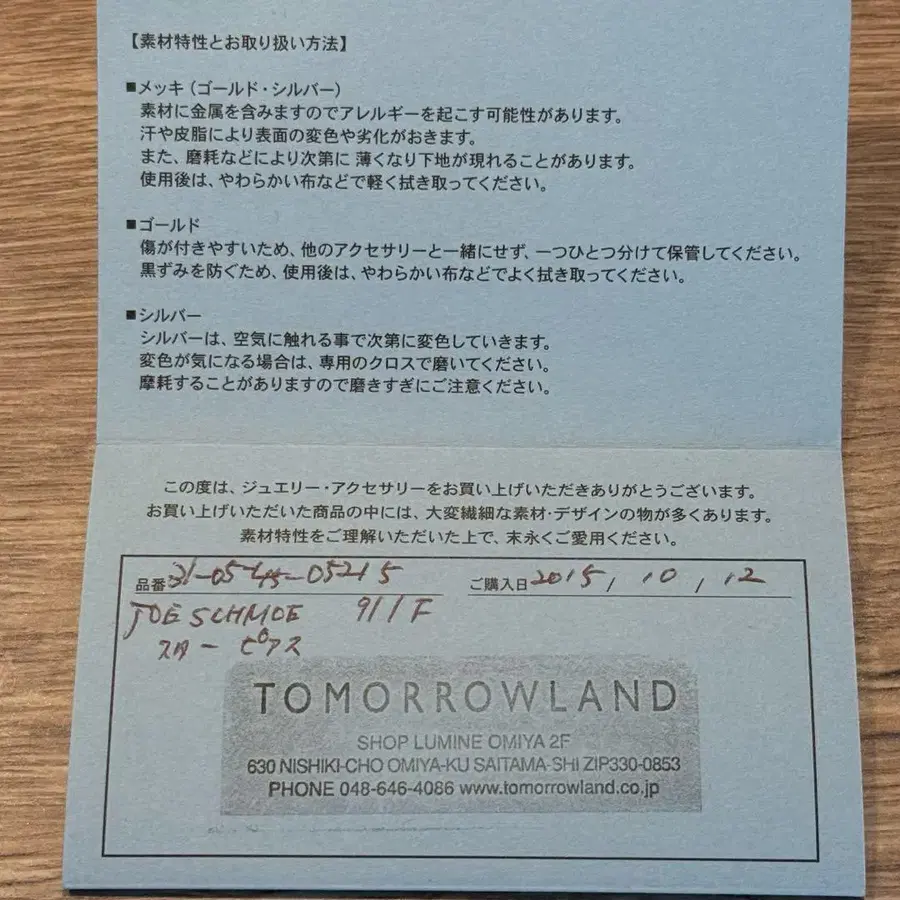 【素材特性とお取り扱い方法】
■メッキ（ゴールド・シルバー）
素材に金属を含みますのでアレルギーを起こす可能性があります。
汗や皮脂により表面の変色や劣化がおきます。
また、磨耗などにより次第に 薄くなり下地が現れることがあります。
使用後は、やわらかい布などで軽く拭き取ってください。
■ゴールド
傷が付きやすいため、他のアクセサリーと一緒にせず、一つひとつ分けて保管してください。
黒ずみを防ぐため、使用後は、やわらかい布などでよく拭き取ってください。
■シルバー
シルバーは、空気に触れる事で次第に変色していきます。
変色が気になる場合は、専用のクロスで磨いてください。
摩耗することがありますので磨きすぎにご注意ください。
この度は、ジュエリー・アクセサリーをお買い上げいただきありがとうございます。
お買い上げいただいた商品の中には、大変繊細な素材・デザインの物が多くあります。
素材特性をご理解いただいた上で、末永くご愛用ください。
品番 ご購入日 2015, 10, 12
JOE SCHMOE 911F
スター ピアス
TOMORROWLAND
SHOP LUMINE OMIYA 2F
630 NISHIKI-CHO OMIYA-KU SAITAMA-SHI ZIP330-0853
PHONE 048-646-4086 www.tomorrowland.co.jp